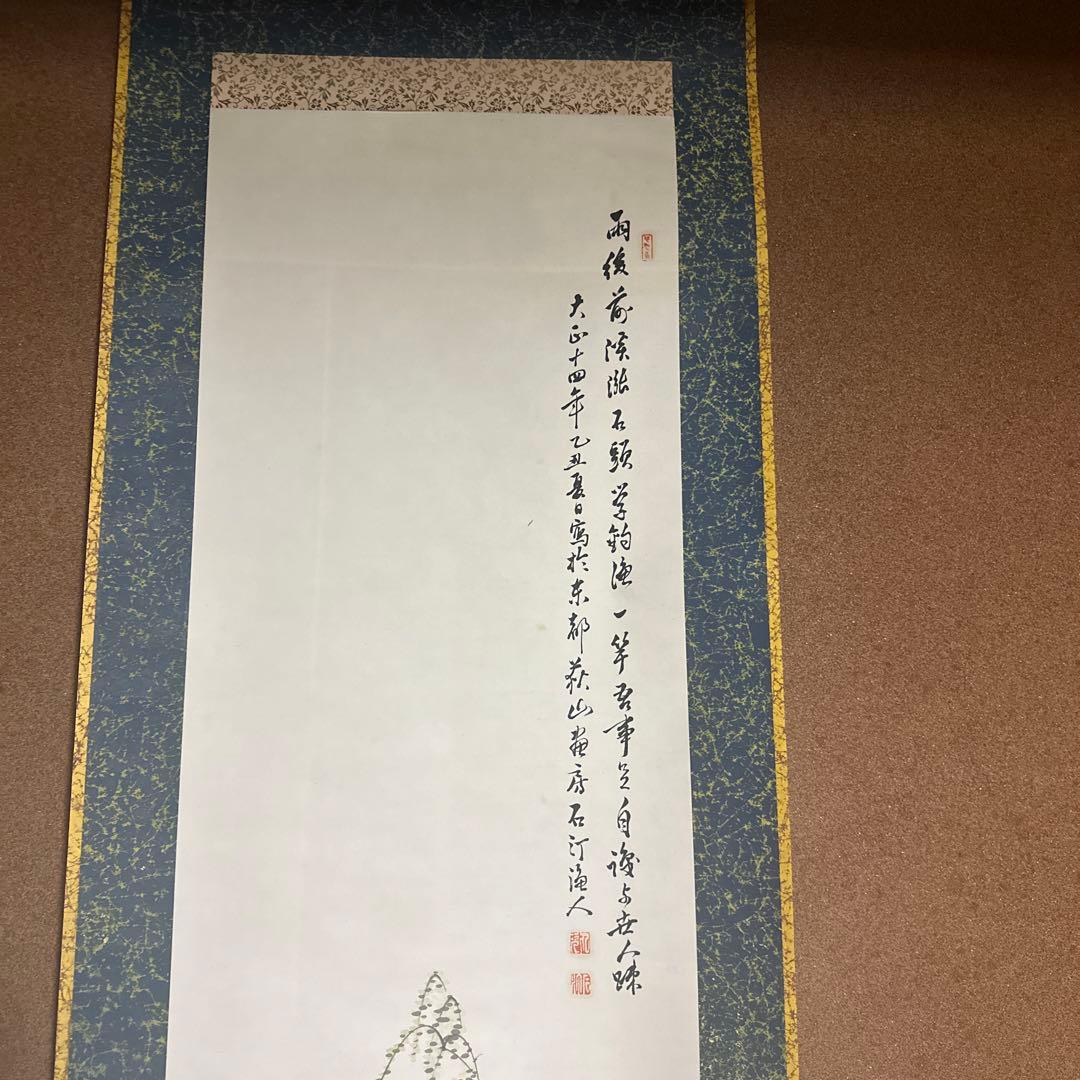 雨後前溪漲石頭学釣漁一竿吾事足自與世人疎
大正十四年乙丑夏日寫於东都萩山畫房石汀漁人